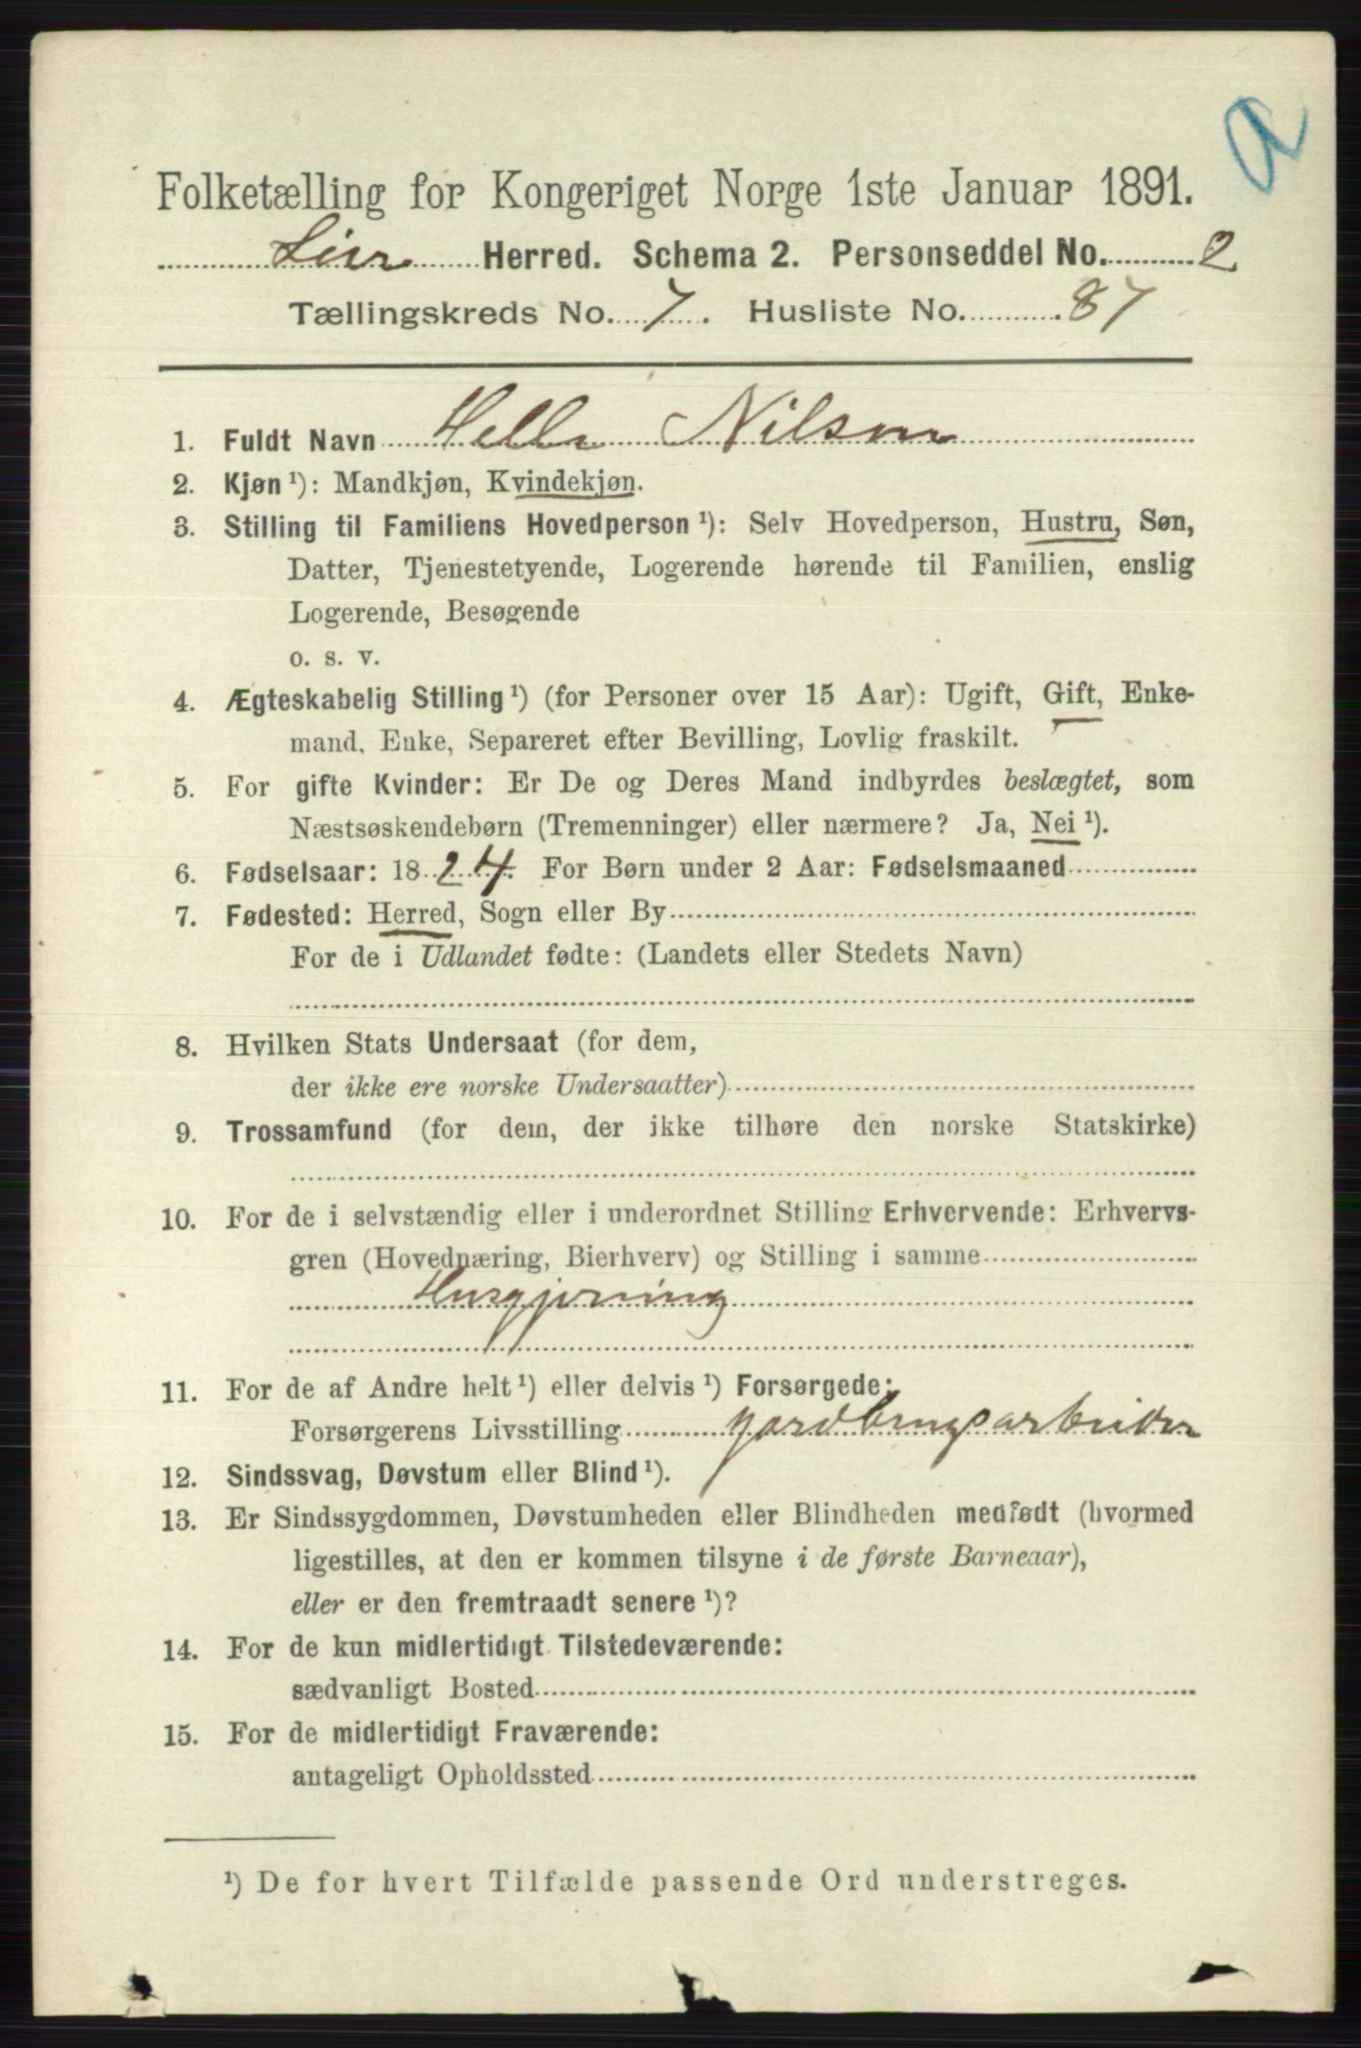 a
Folketælling for Kongeriget Norge 1ste Januar 1891.
Lier Herred. Schema 2. Personseddel No. 2
Tællingskreds No. 7. Husliste No. 87
1. Fuldt Navn Helle Nilsen
2. Kjøn ¹): Mandkjøn, Kvindekjøn.
3. Stilling til Familiens Hovedperson ¹): Selv Hovedperson, Hustru, Søn,
Datter, Tjenestetyende, Logerende hørende til Familien, enslig
Logerende, Besøgende
o. s. v.
4. Ægteskabelig Stilling ¹) (for Personer over 15 Aar): Ugift, Gift, Enke-
mand, Enke, Separeret efter Bevilling, Lovlig fraskilt.
5. For gifte Kvinder: Er De og Deres Mand indbyrdes beslægtet, som
Næstsøskendebørn (Tremenninger) eller nærmere? Ja, Nei ¹).
6. Fødselsaar: 1824. For Børn under 2 Aar: Fødselsmaaned
7. Fødested: Herred, Sogn eller By
For de i Udlandet fødte: (Landets eller Stedets Navn)
8. Hvilken Stats Undersaat (for dem,
der ikke ere norske Undersaatter)
9. Trossamfund (for dem, der ikke tilhøre den norske Statskirke)
10. For de i selvstændig eller i underordnet Stilling Erhvervende: Erhvervs-
gren (Hovednæring, Bierhverv) og Stilling i samme
Husgjerning
11. For de af Andre helt ¹) eller delvis ¹) Forsørgede:
Forsørgerens Livsstilling jordbrugsarbeider
12. Sindssvag, Døvstum eller Blind ¹).
13. Er Sindssygdommen, Døvstumheden eller Blindheden medfødt (hvormed
ligestilles, at den er kommen tilsyne i de første Barneaar),
eller er den fremtraadt senere ¹)?
14. For de kun midlertidigt Tilstedeværende:
sædvanligt Bosted
15. For de midlertidigt Fraværende:
antageligt Opholdssted
¹) De for hvert Tilfælde passende Ord understreges.